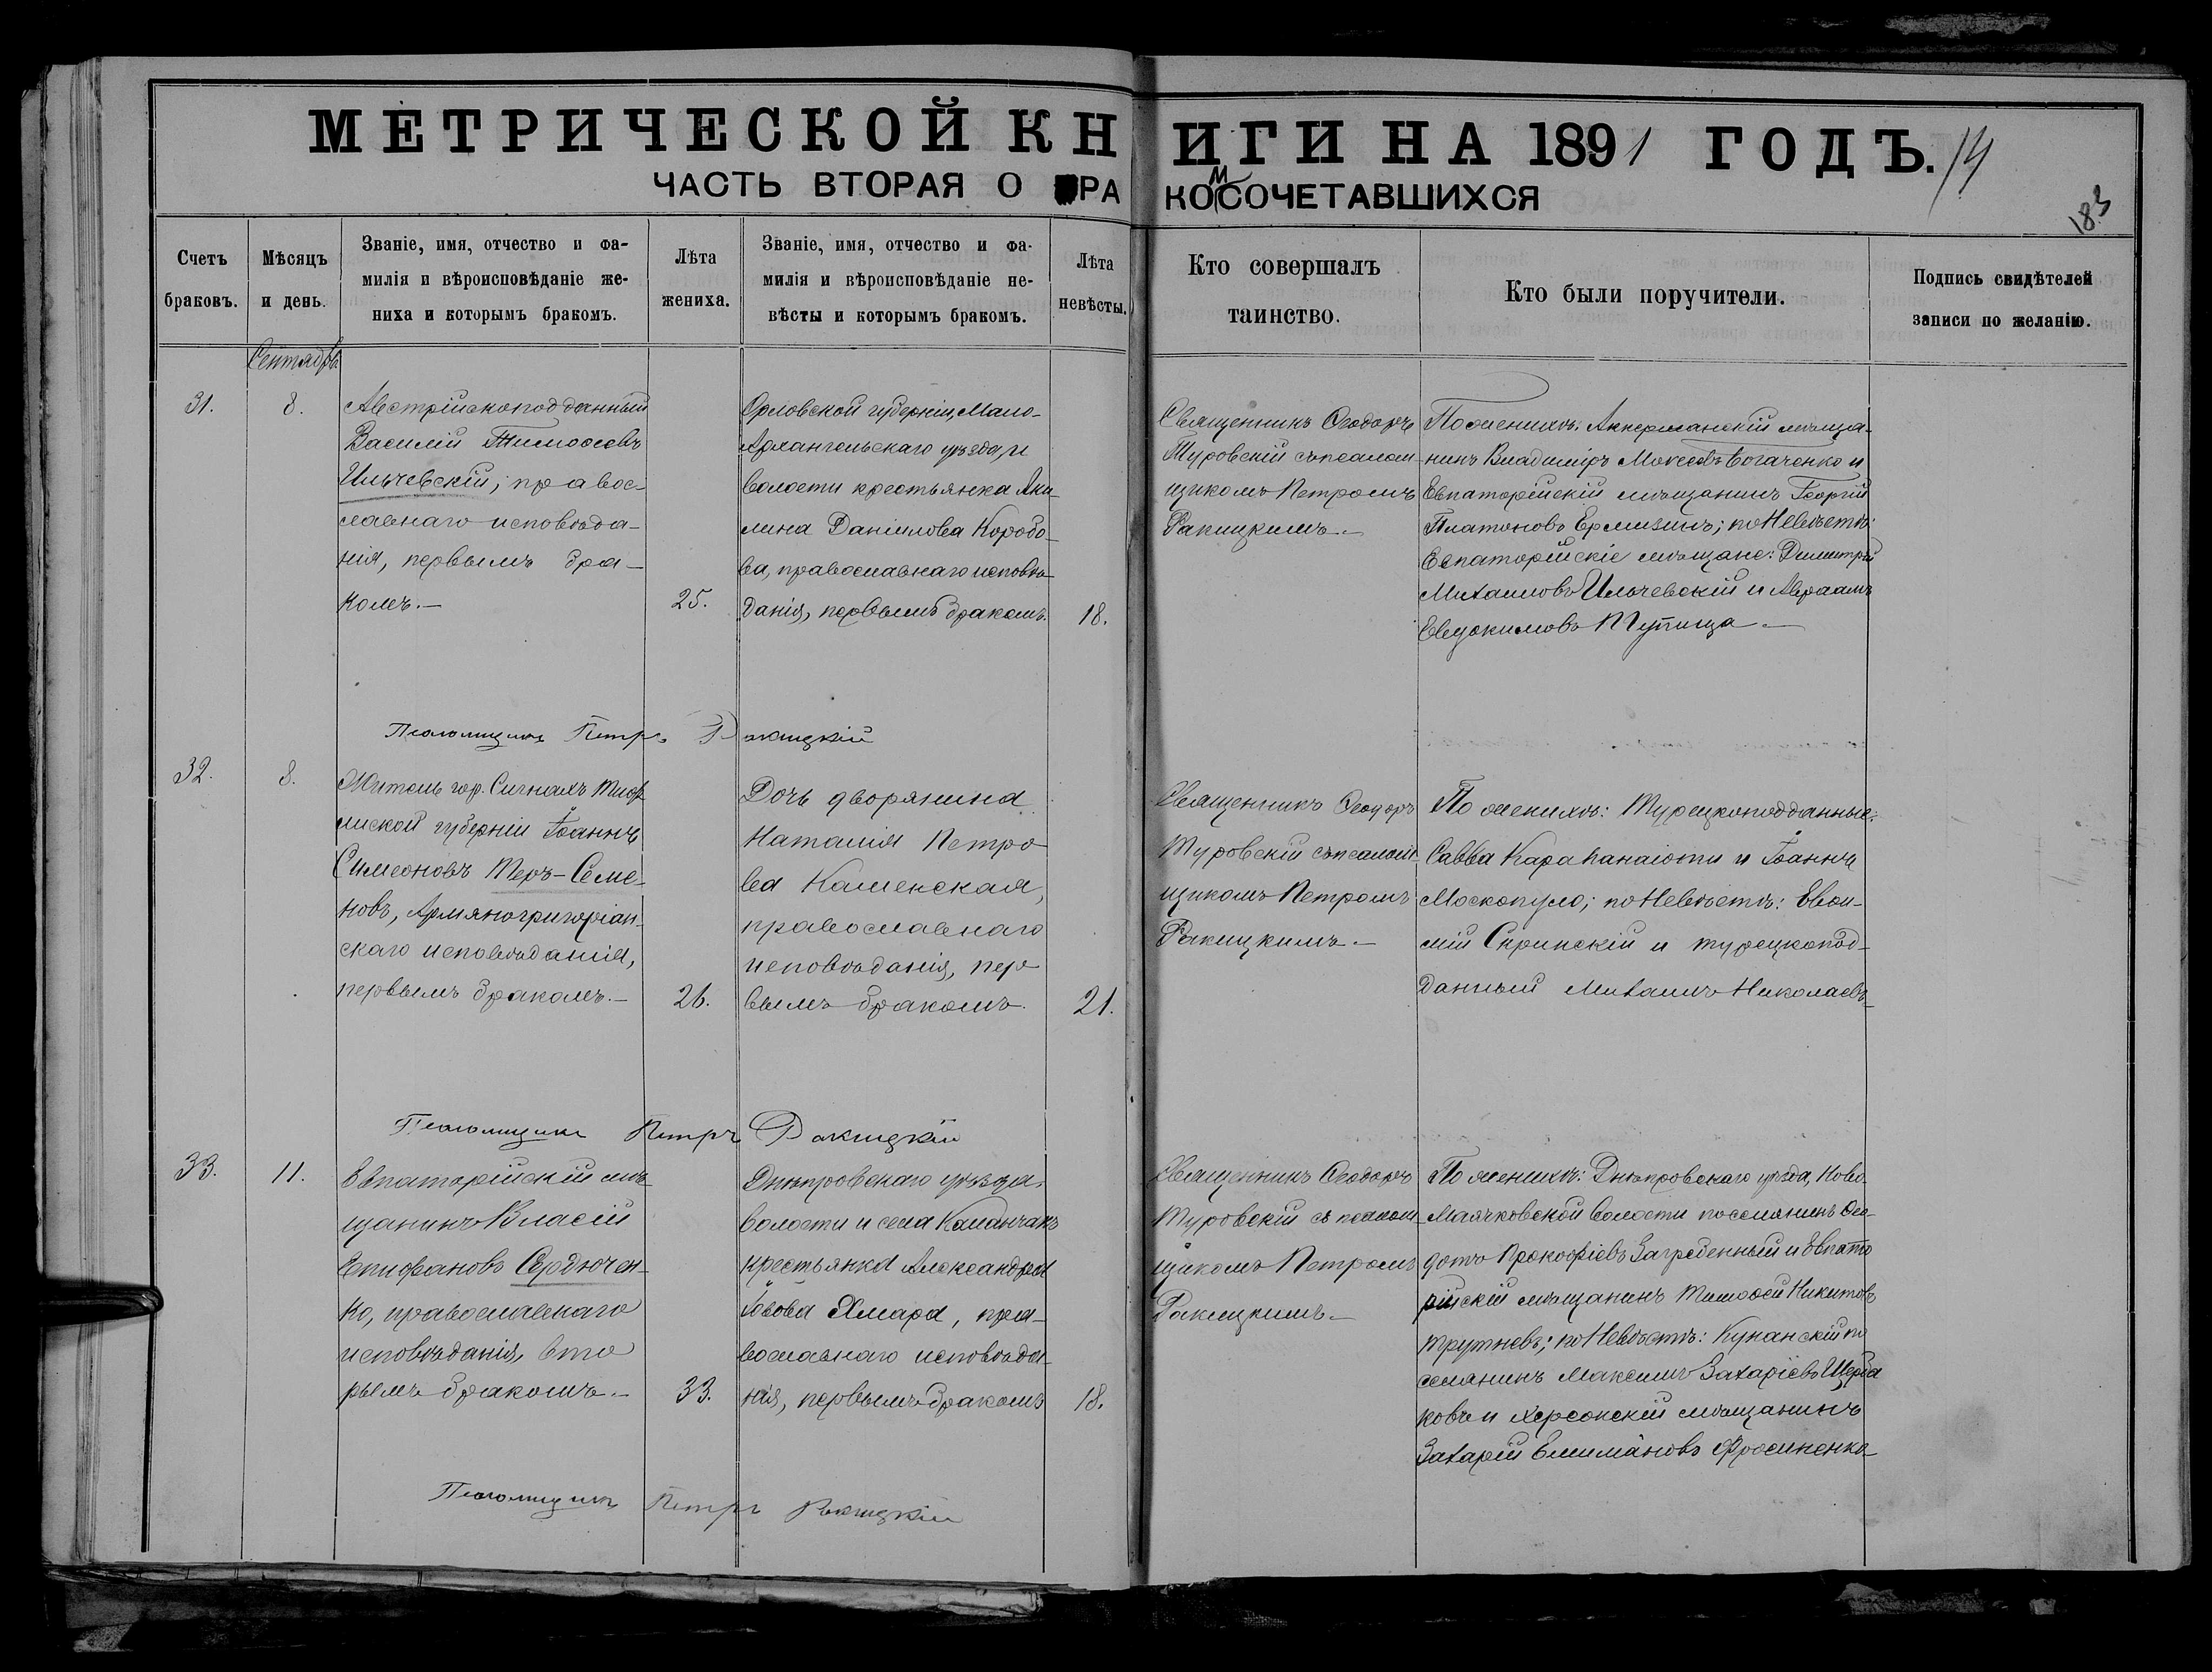 МЕТРИЧЕСКОЙ КНИГИ НА 1891 ГОДЪ. 14
ЧАСТЬ ВТОРАЯ О БРАКОМСОЧЕТАВШИХСЯ
183
Счетъ
браковъ.
Мѣсяцъ
и день.
Званіе, имя, отчество и фа-
милія и вѣроисповѣданіе же-
ниха и которымъ бракомъ.
Лѣта
жениха.
Званіе, имя, отчество и фа-
милія и вѣроисповѣданіе не-
вѣсты и которымъ бракомъ.
Лѣта
невѣсты.
Кто совершалъ
таинство.
Кто были поручители.
Подпись свидѣтелей
записи по желанію.
Сентябрь
31.
8.
Австрійскоподданный
Василій Тимоѳеевъ
Ильчевскій, правос-
лавнаго исповѣда-
нія, первымъ бра-
комъ.—
25.
Орловской губерніи, Мало-
Архангельскаго уѣзда, и
волости крестьянка Аку-
лина Даніилова Коробо-
ва, православнаго исповѣ-
данія, первымъ бракомъ.
18.
Священникъ Ѳеодоръ
Туровскій съ псалом-
щикомъ Петромъ
Ракицкимъ.—
По женихѣ: Аккерманскій мѣща-
нинъ Владиміръ Мокеевъ Богаченко и
Евпаторійскій мѣщанинъ Георгій
Платоновъ Ермизинъ; по Невѣстѣ:
Евпаторійскіе мѣщане: Димитрій
Михаиловъ Ильчевскій и Авраамъ
Евдокимовъ Тупица.—
Псаломщикъ Петръ Ракицкій
32.
8.
Житель гор. Сигнахъ Тиф-
лиской губерніи Іоаннъ
Симеоновъ Теръ-Семе-
новъ, Армяногригоріан-
скаго исповѣданія,
первымъ бракомъ.—
26.
Дочь дворянина
Наталія Петро-
ва Каменская,
православнаго
исповѣданія, пер-
вымъ бракомъ.
21.
Священникъ Ѳеодоръ
Туровскій съ псалом-
щикомъ Петромъ
Ракицкимъ.—
По женихѣ: Турецкоподданные:
Савва Карапанаіоти и Іоаннъ
Москопуло; по Невѣстѣ: Евѳи-
мій Скринскій и турецкопод-
данный Михаилъ Николаевъ
Псаломщикъ Петръ Ракицкій
33.
11.
Евпаторійскій мѣ-
щанинъ Власій
Епифановъ Сердючен-
ко, православнаго
исповѣданія, вто-
рымъ бракомъ.—
33.
Днѣпровскаго уѣзда,
волости и села Каланчакъ
крестьянка Александра
Іовова Ямара, пра-
вославнаго исповѣда-
нія, первымъ бракомъ
18.
Священникъ Ѳеодоръ
Туровскій съ псалом-
щикомъ Петромъ
Ракицкимъ.—
По женихѣ: Днѣпровскаго уѣзда, Ново-
Маячковской волости поселянинъ Ѳео-
дотъ Прокофіевъ Загребенный и Евпато-
рійскій мѣщанинъ Тимоѳей Никитовъ
Трутневъ; по Невѣстѣ: Куканскій по-
селянинъ Максимъ Захаріевъ Щерба-
ковъ и Херсонскій мѣщанинъ
Захарій Филимоновъ Фросиненко
Псаломщикъ Петръ Ракицкій